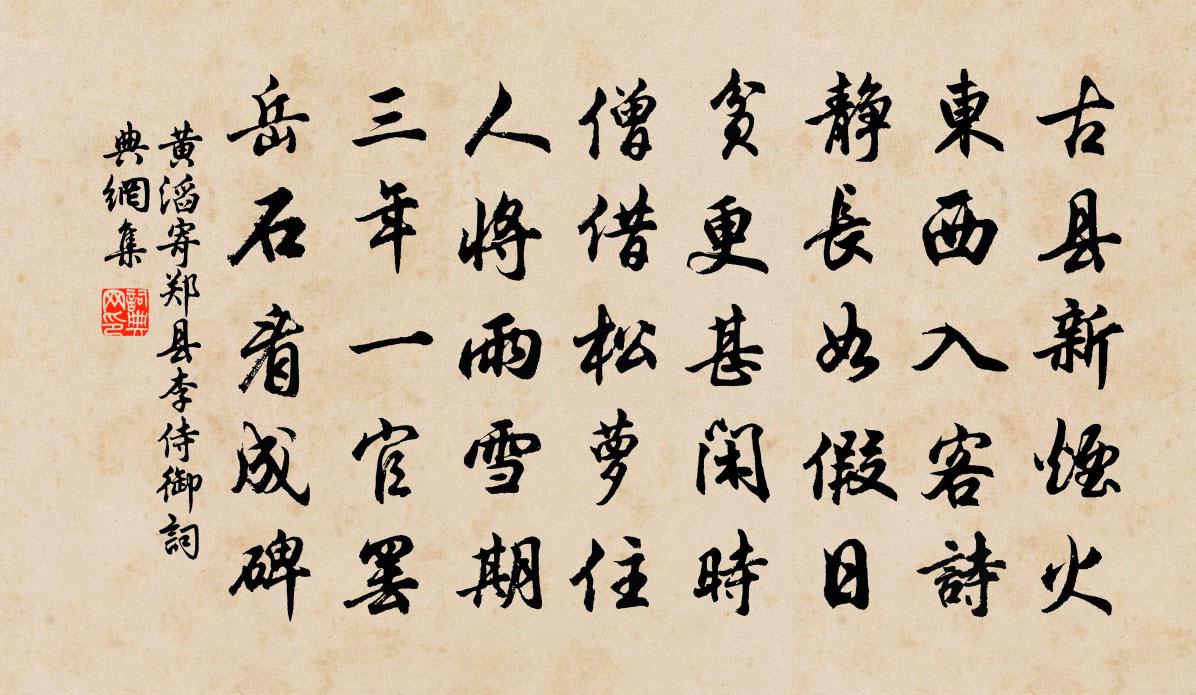 古县新煙火
東西入客詩
靜長如假日
貧更甚閑時
僧借松萝住
人將雨雪期
三年一官罢
岳石看成碑
黄滔寄郑县李侍御詞
典網集
詞典
网印